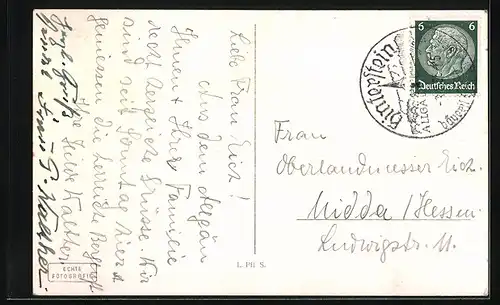 Liebe Frau Eich!
Aus dem Allgäu
Ihnen & Ihrer Familie
recht herzliche Grüsse. Wir
sind seit Sonntag hier &
geniessen die herrliche Bergluft
Ihre Hede Walther.
Hzl. Grüße
Frau G. Walther.
ECHTE
FOTOGRAFIE
L. Ph S.
Hinterstein
ALLGÄU
6 6
Deutsches Reich
Frau
Oberlandmesser Eich.
Nidda / Hessen
Ludwigstr. 11.